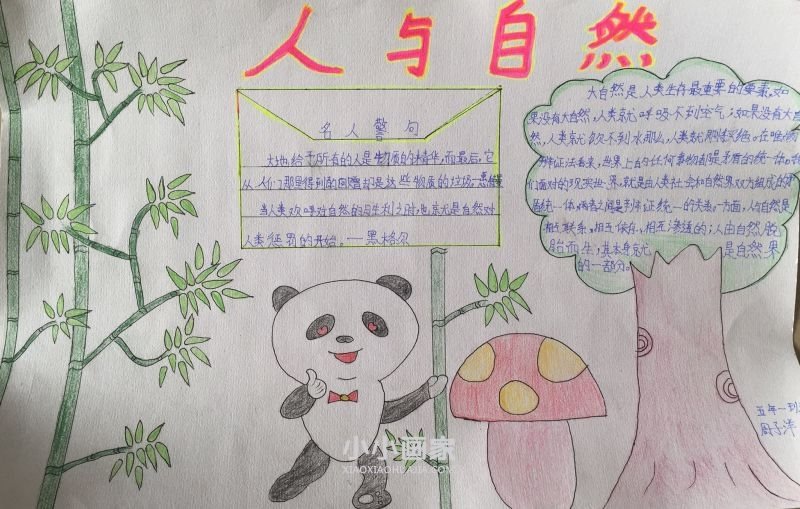 人与自然
名人警句
大地给予所有的人是物质的精华,而最后,它
从人们那里得到的回赠却是这些物质的垃圾。惠特曼
当人类欢呼对自然的胜利之时,也就是自然对
人类惩罚的开始。——黑格尔
大自然是人类生存最重要的要素。如
果没有大自然,人类就呼吸不到空气;如果没有大自
然,人类就饮不到水那么,人类就刚灭绝。在唯物
辩证法看来,世界上的任何事物都是矛盾的统一体。我
们面对的现实世界,就是由人类社会和自然界双方组成的矛
盾统一体,两者之间是辩证统一的关系。一方面,人与自然是
相互联系、相互依存、相互渗透的;人由自然脱
胎而生,其本身就 是自然界
的一部分。
五年一班
周子洋
小小画家
XIAOXIAOHUAJIA.COM